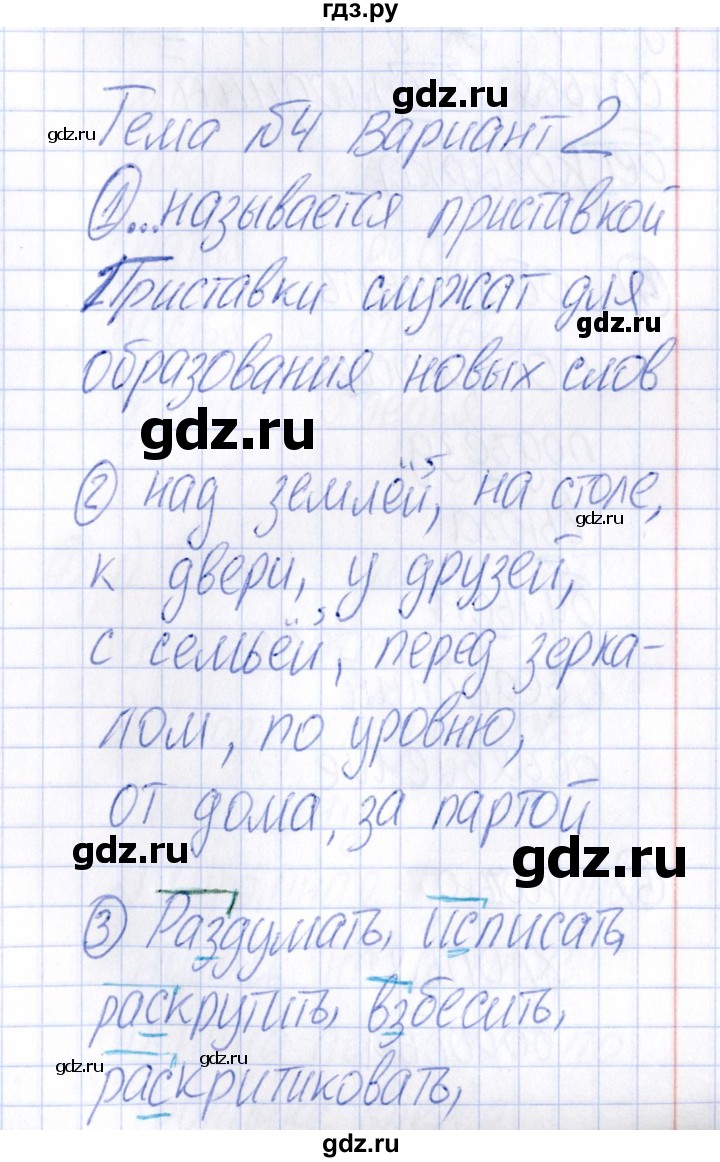 гдз.ру
gdz.ru
gdz.ru
Тема №4 Вариант 2
① ...называется приставкой
Приставки служат для
gdz.ru
образования новых слов
gdz.ru
② над землёй, на столе,
gdz.ru
к двери, у друзей,
с семьёй, перед зерка-
лом, по уровню,
от дома, за партой
gdz.ru
gdz.ru
③ Раздумать, исписать,
раскрутить, взбесить,
gdz.ru
gdz.ru
раскритиковать,
gdz.ru